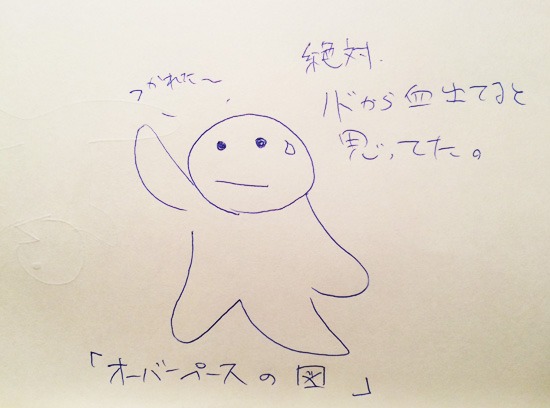 つかれた〜
絶対.
ノドから血出てると
思ってた。
「オーバーペースの図」